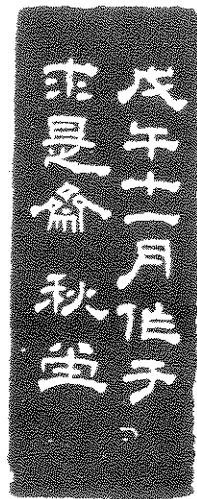 戊午十一月作于
求是齋 秋堂